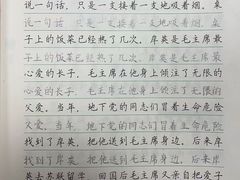 说一句话，只是一支接着一支地吸着烟。桌
说一句话，只是一支接着一支地吸着烟。桌
子上的饭菜已经热了几次，岸英是毛主席最
子上的饭菜已经热了几次，岸英是毛主席最
心爱的长子，毛主席在他身上倾注了无限的
心爱的长子，毛主席在他身上倾注了无限的
父爱。当年，地下党的同志们冒着生命危险
父爱。当年，地下党的同志们冒着生命危险
找到了岸英，把他送到毛主席身边，后来岸
找到了岸英，把他送到毛主席身边，后来岸
英去苏联留学，回国后毛主席又亲自把爱子